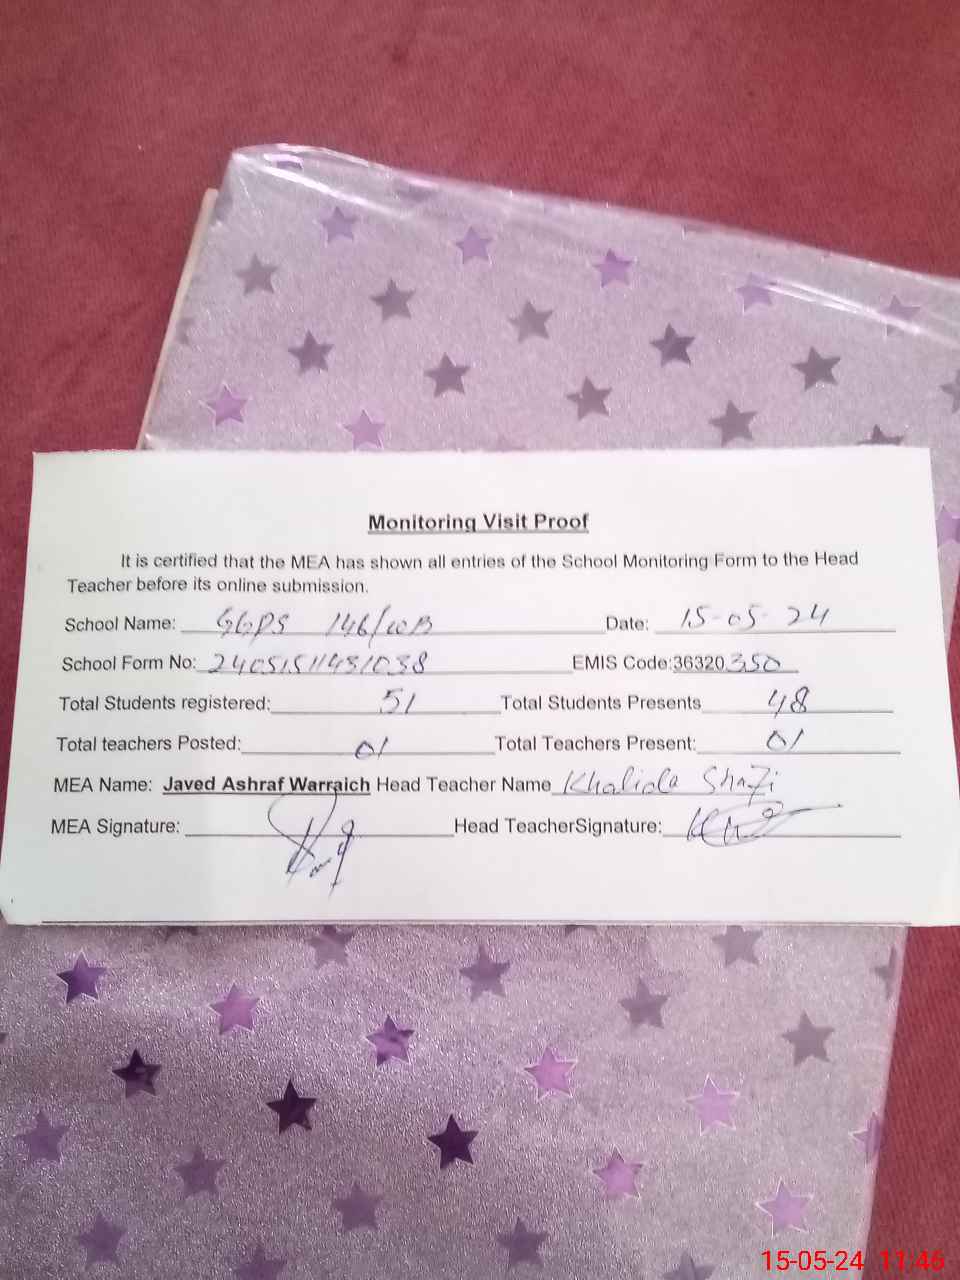 Monitoring Visit Proof
It is certified that the MEA has shown all entries of the School Monitoring Form to the Head
Teacher before its online submission.
School Name: GGPS 146/WB Date: 15-05-24
School Form No: EMIS Code:36320350
Total Students registered: 51 Total Students Presents 48
Total teachers Posted: 01 Total Teachers Present: 01
MEA Name: Javed Ashraf Warraich Head Teacher Name Khalida Shafi
MEA Signature: Head TeacherSignature:
15-05-24 11:46